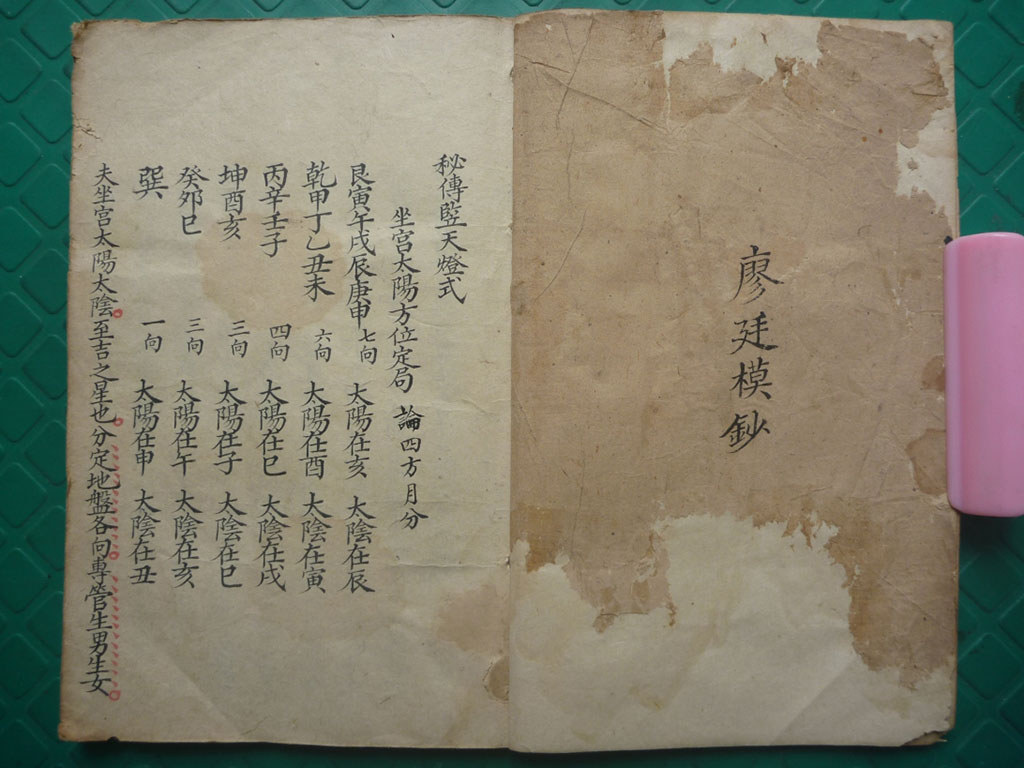 廖廷模鈔
秘傳監天燈式
坐宫太陽方位定局 論四方月分
艮寅午戌辰庚申 七向 太陽在亥 太陰在辰
乾甲丁乙丑未 六向 太陽在酉 太陰在寅
丙辛壬子 四向 太陽在巳 太陰在戌
坤酉亥 三向 太陽在子 太陰在巳
癸卯巳 三向 太陽在午 太陰在亥
巽 一向 太陽在申 太陰在丑
夫坐宫太陽太陰至吉之星也分定地盤各向專管生男生女